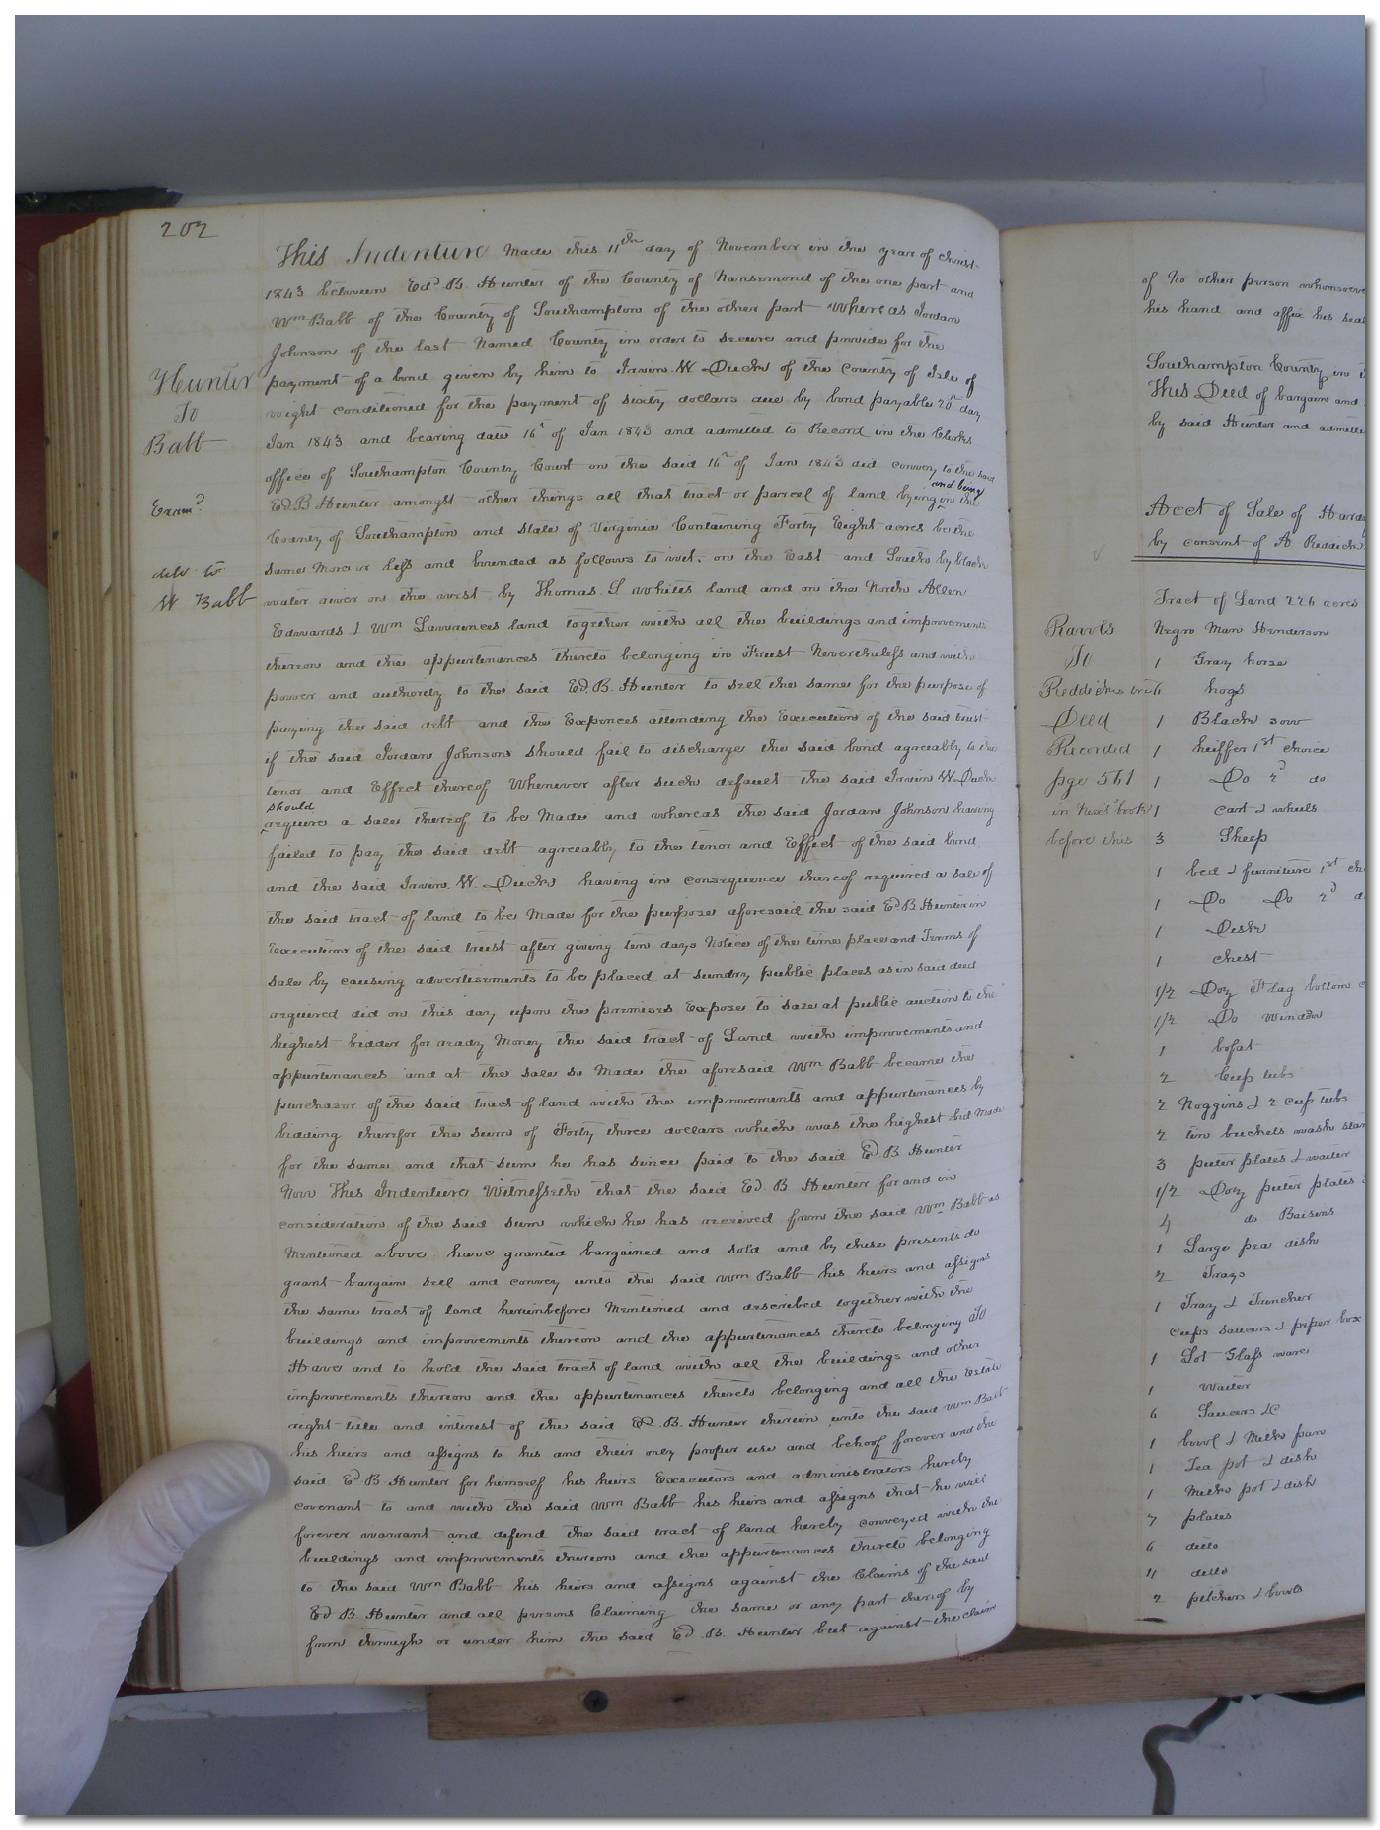 202
Hunter
To
Babb
Exam.d
delv to
W Babb
This Indenture Made this 11th day of November in the year of christ
1843 between Ed.d B. Hunter of the County of Nansemond of the one part and
Wm Babb of the County of Southampton of the other part Whereas Jordan
Johnson of the last Named County in order to secure and provide for the
payment of a bond given by him to Irwin W. Duck of the County of Isle of
wight conditioned for the payment of sixty dollars due by bond payable 25th day
Jan 1843 and bearing date 16th of Jan 1843 and admitted to Record in the Clerks
office of Southampton County Court on the said 16th of Jan 1843 did convey to the said
and being
Ed B Hunter amongst other things all that tract or parcel of land lying in the
County of Southampton and State of Virginia Containing Forty Eight acres be the
same More or less and bounded as follows to wit. on the East and South by black
water river on the west by Thomas S Whites land and on the North Allen
Edwards & Wm Lawrences land together with all the buildings and improvements
thereon and the appurtenances thereto belonging in Trust Nevertheless and with
power and authority to the said Ed. B. Hunter to sell the same for the purpose of
paying the said debt and the Expences attending the Execution of the said trust
if the said Jordan Johnson should fail to discharge the said bond agreeably to the
tenor and Effect thereof Whenever after such default the said Irwin W. Duck
should
require a sale thereof to be Made and whereas the said Jordan Johnson having
failed to pay the said debt agreeably to the tenor and Effect of the said bond
and the said Irwin W. Duck having in consequence thereof required a sale of
the said tract of land to be Made for the purpose aforesaid the said Ed B Hunter in
Execution of the said trust after giving ten days Notice of the time place and Terms of
sale by causing advertisements to be placed at sundry public places as in said deed
required did on this day upon the premises Expose to sale at public auction to the
highest bidder for ready Money the said tract of Land with improvements and
appurtenances and at the sale so Made the aforesaid Wm Babb became the
purchaser of the said tract of land with the improvements and appurtenances by
bidding therefor the sum of Forty three dollars which was the highest bid Made
for the same and that sum he has since paid to the said Ed B Hunter
Now This Indenture Witnesseth that the said Ed. B. Hunter for and in
consideration of the said sum which he has received from the said Wm Babb as
Mentioned above have granted bargained and sold and by these presents do
grant bargain sell and convey unto the said Wm Babb his heirs and assigns
the same tract of land hereinbefore Mentioned and described together with the
buildings and improvements thereon and the appurtenances thereto belonging To
Have and to hold the said tract of land with all the buildings and other
improvements thereon and the appurtenances thereto belonging and all the Estate
right title and interest of the said Ed. B. Hunter therein unto the said Wm Babb
his heirs and assigns to his and their only proper use and behoof forever and the
said Ed B Hunter for himself his heirs Executors and administrators hereby
covenant to and with the said Wm Babb his heirs and assigns that he will
forever warrant and defend the said tract of land hereby conveyed with the
buildings and improvements thereon and the appurtenances thereto belonging
to the said Wm Babb his heirs and assigns against the Claims of the said
Ed B Hunter and all persons Claiming the same or any part thereof by
from through or under him the said Ed B. Hunter but against the claim
of No other person whomsoever
his hand and affix his seal
Southampton County in
This Deed of bargain and
by said Hunter and
Acct of Sale of
by consent of A Reddick
Tract of Land 226 acres
Negro Man Henderson
To
Deed
Recorded
page 561
in Next book
before this
1 Gray horse
6 hogs
1 Black sow
1 heiffer 1st choice
1 Do 2d do
1 cart & wheels
3 Sheep
1 bed & furniture 1st
1 Do Do 2d
1 Desk
1 chest
1/2 Doz Flag bottom
1/2 Do Windsor
1 bofat
2 Cup tubs
2 Noggins & 2 cup tubs
2 tin buckets wash
3 puter plates & waiter
1/2 Doz puter plates
4 do Baisens
1 Large pea dish
2 Trays
1 Tray & Truncher
cups saucers & peper box
1 Lot Glass ware
1 Waiter
6 Saucers &c
1 bowl & Milk pan
1 Tea pot & dish
1 Milk pot & dish
7 plates
6 ditto
11 ditto
2 pitchers & bowls